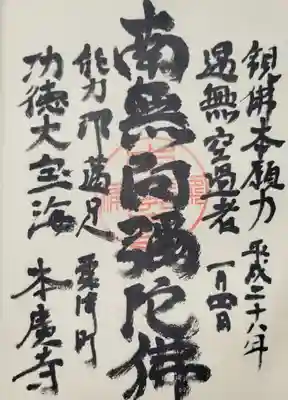 観佛本願力 平成二十八年
遇無空過者 一月四日
南無阿彌陀佛
能令速満足 町
功徳大宝海 本廣寺